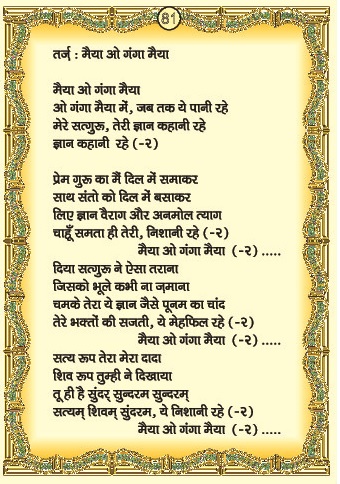 81
तर्ज़ : मैया ओ गंगा मैया
मैया ओ गंगा मैया
ओ गंगा मैया में, जब तक ये पानी रहे
मेरे सत्गुरु, तेरी ज्ञान कहानी रहे
ज्ञान कहानी रहे (-२)
प्रेम गुरु का मैं दिल में समाकर
साथ संतो को दिल में बसाकर
लिए ज्ञान वैराग और अनमोल त्याग
चाहूँ समता ही तेरी, निशानी रहे (-२)
मैया ओ गंगा मैया (-२) .....
दिया सत्गुरु ने ऐसा तराना
जिसको भूले कभी ना ज़माना
चमके तेरा ये ज्ञान जैसे पूनम का चांद
तेरे भक्तों की सजती, ये मेहफिल रहे (-२)
मैया ओ गंगा मैया (-२) .....
सत्य रूप तेरा मेरा दादा
शिव रूप तुम्ही ने दिखाया
तू ही है सुंदर् सुन्दरम सुन्दरम्
सत्यम् शिवम् सुंदरम, ये निशानी रहे (-२)
मैया ओ गंगा मैया (-२) .....